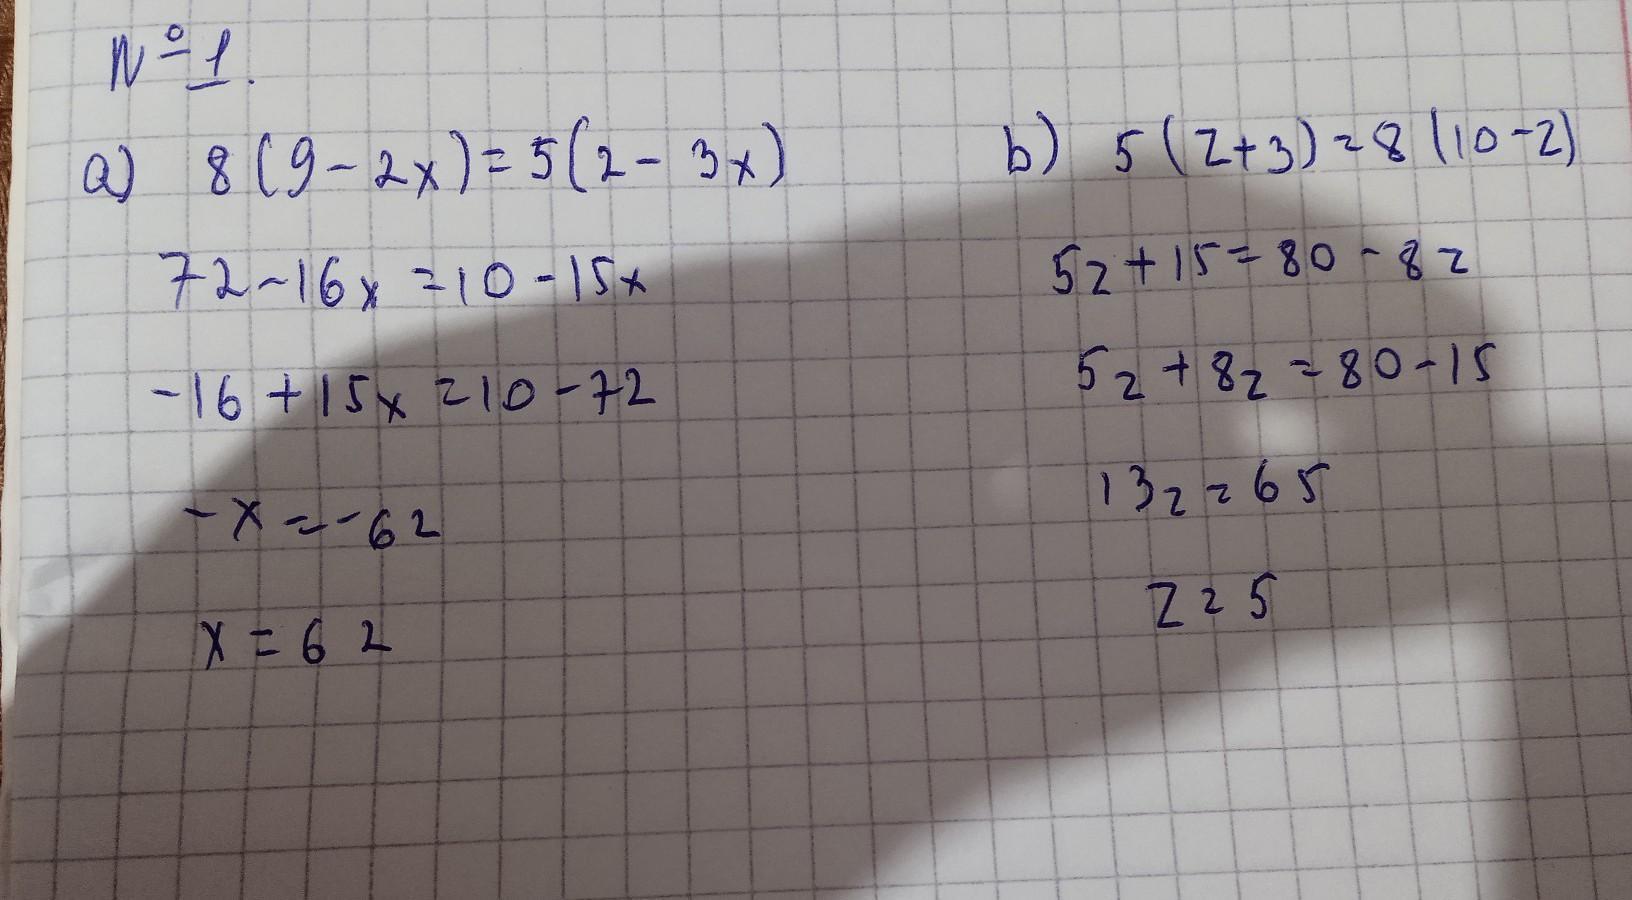 № 1.
a) 8(9-2x)=5(2-3x)
72-16x=10-15x
-16+15x=10-72
-x=-62
x=62
b) 5(z+3)=8(10-z)
5z+15=80-8z
5z+8z=80-15
13z=65
z=5